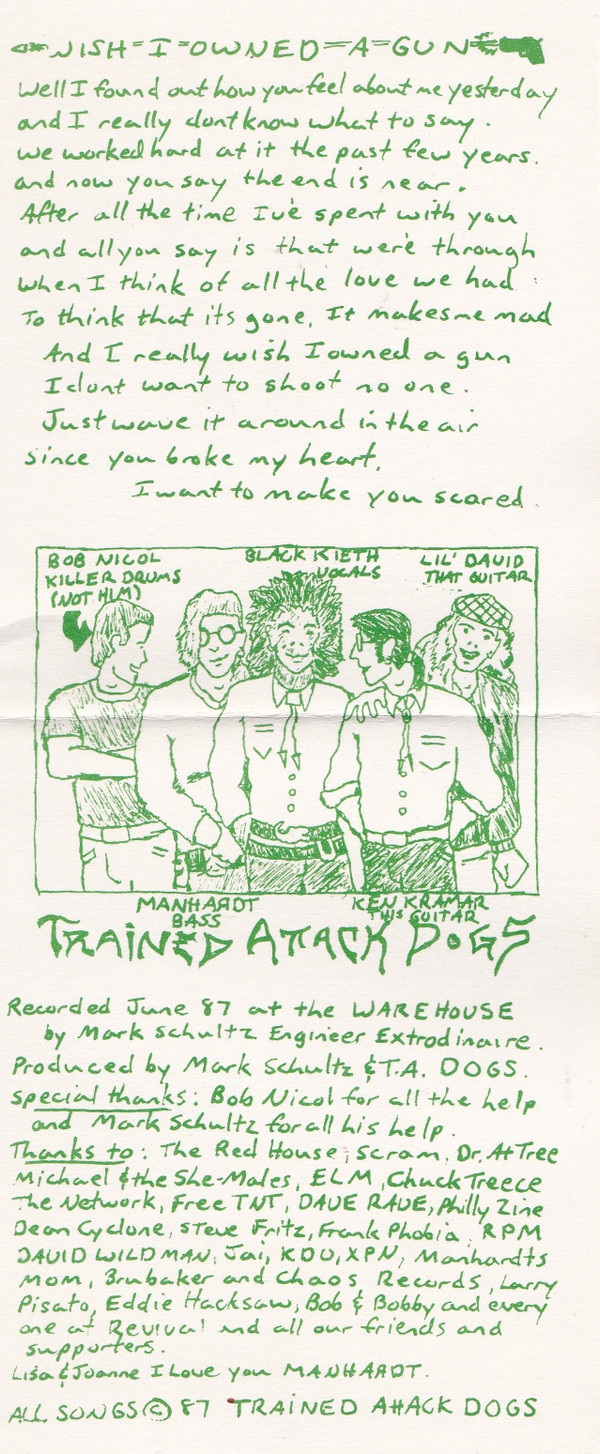 WISH=I=OWNED=A=GUN
Well I found out how you feel about me yesterday
and I really dont know what to say.
we worked hard at it the past few years.
and now you say the end is near.
After all the time I've spent with you
and all you say is that we're through
when I think of all the love we had
To think that its gone, It makes me mad
And I really wish I owned a gun
I dont want to shoot no one.
Just wave it around in the air
since you broke my heart,
I want to make you scared.
BOB NICOL
KILLER DRUMS
(NOT HIM)
BLACK KIETH
VOCALS
LIL' DAVID
THAT GUITAR
MANHARDT
BASS
KEN KRAMAR
THIS GUITAR
TRAINED ATTACK DOGS
Recorded June 87 at the WAREHOUSE
by Mark Schultz Engineer Extrodinaire.
Produced by Mark Schultz & T.A. DOGS.
special thanks: Bob Nicol for all the help
and Mark Schultz for all his help.
Thanks to: The Red House, Scram, Dr. At Tree
Michael & the She-Males, ELM, Chuck Treece
The Network, Free TNT, DAVE RAVE, Philly Zine
Dean Cyclone, Steve Fritz, Frank Phobia, RPM
DAVID WILDMAN, Jai, KDU, XPN, Manhardts
MOM, Brubaker and Chaos, Records, Larry
Pisato, Eddie Hacksaw, Bob & Bobby and every
one at Revival and all our friends and
supporters.
Lisa & Joanne I Love you MANHARDT.
ALL SONGS © 87 TRAINED ATTACK DOGS